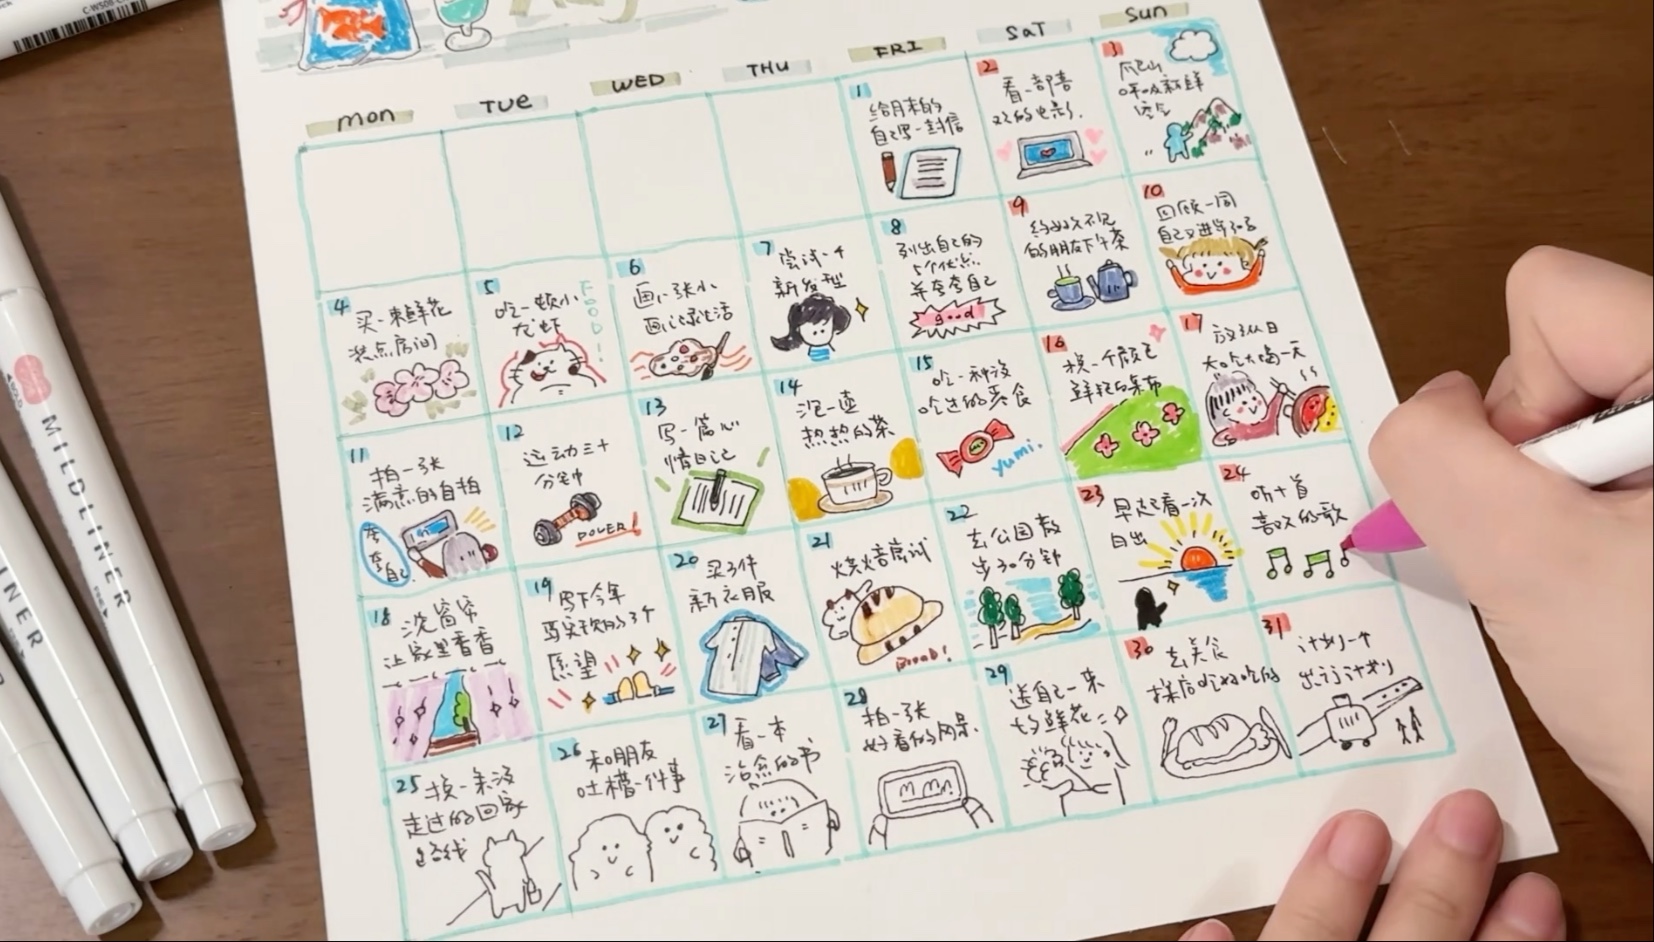 MON TUE WED THU FRI SAT SUN
1
给月末的
自己写一封信
2
看一部喜
欢的电影.
3
爬山
呼吸新鲜
空气
4
买一束鲜花
装点房间
5
吃一顿小
龙虾
FOOD!
6
画一张小
画记录生活
7
尝试一个
新发型
8
列出自己的
5个优点
并夸夸自己
good
9
约好久不见
的朋友下午茶
10
回顾一周
自己又进步了多
11
拍一张
满意的自拍
夸
夸
自己
12
运动三十
分钟
POWER!
13
写一篇心
情日记
14
泡一壶
热热的茶
15
吃一种没
吃过的美食
yumi.
16
换一个颜色
鲜艳的桌布
17
放纵日
大吃大喝一天
18
洗窗帘
让家里香香
19
写下今年
要实现的3个
愿望
20
买3件
新衣服
21
烘焙尝试
Bread!
22
去公园散
步30分钟
23
早起看一次
日出
24
听十首
喜欢的歌
25
换一条没
走过的回家
路线
26
和朋友
吐槽一件事
27
看一本
治愈的书
28
拍一张
好看的风景.
29
送自己一束
鲜花
30
去美食
探店吃好吃的
31
计划一个
出行计划
MILDLINER
LINER